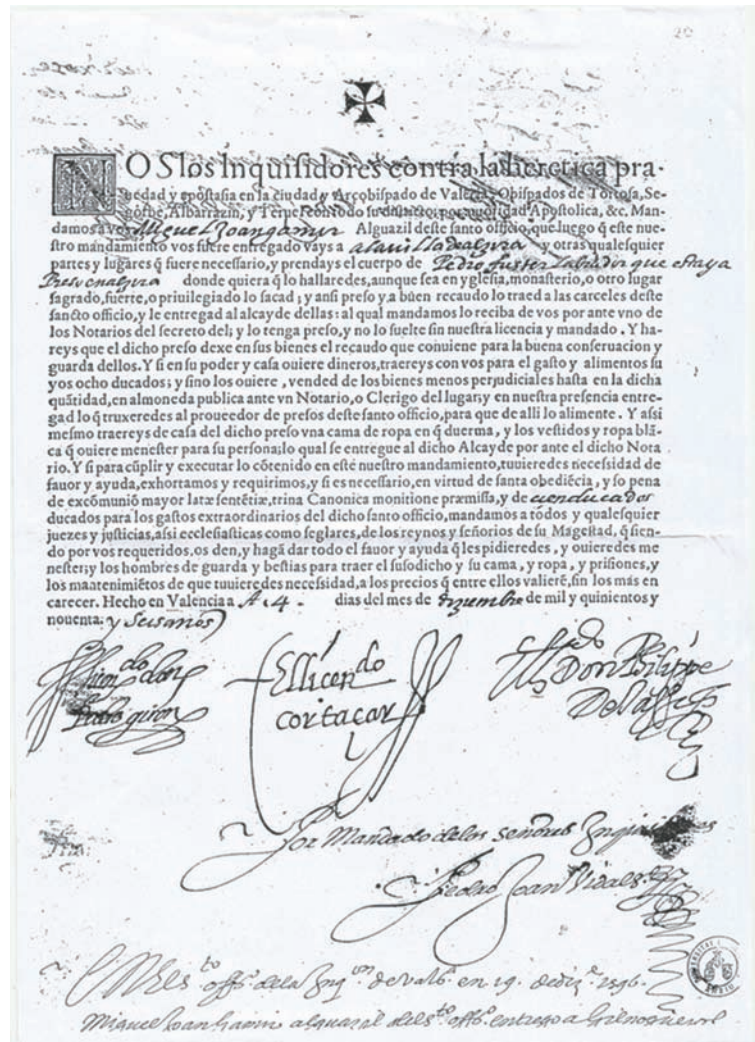 20
NOS los Inquisidores contra la heretica pra-
uedad y apostasia en la ciudad y Arçobispado de Valecia, Obispados de Tortosa, Se-
gorbe, Albarrazin, y Teruel con todo su districto por autoridad Apostolica, &c. Man-
damos a vos Miguel Joan gamir Alguazil deste santo officio, que luego q̃ este nue-
stro mandamiento vos fuere entregado vays a y otras qualesquier
partes y lugares q̃ fuere necessario, y prendays el cuerpo de Pedro fuster labrador que esta ya
Preso en donde quiera q̃ lo hallaredes, aunque sea en yglesia, monasterio, o otro lugar
sagrado, fuerte, o priuilegiado lo sacad; y ansi preso y a buen recaudo lo traed a las carceles deste
sancto officio, y le entregad al alcayde dellas: al qual mandamos lo reciba de vos por ante vno de
los Notarios del secreto del; y lo tenga preso, y no lo suelte sin nuestra licencia y mandado. Y ha-
reys que el dicho preso dexe en sus bienes el recaudo que conuiene para la buena conseruacion y
guarda dellos. Y si en su poder y casa ouiere dineros, traereys con vos para el gasto y alimentos su
yos ocho ducados; y sino los ouiere, vended de los bienes menos perjudiciales hasta en la dicha
quãtidad, en almoneda publica ante vn Notario, o Clerigo del lugar; y en nuestra presencia entre-
gad lo q̃ truxeredes al proueedor de presos deste santo officio, para que de alli lo alimente. Y assi
mesmo traereys de casa del dicho preso vna cama de ropa en q̃ duerma, y los vestidos y ropa blã-
ca q̃ ouiere menester para su persona; lo qual se entregue al dicho Alcayde por ante el dicho Nota
rio. Y si para cũplir y executar lo cõtenido en este nuestro mandamiento, tuuieredes necessidad de
fauor y ayuda, exhortamos y requirimos, y si es necessario, en virtud de santa obediẽcia, y so pena
de excõmuniõ mayor latæ sentẽtiæ, trina Canonica monitione præmissa, y de cien ducados
ducados para los gastos extraordinarios del dicho santo officio, mandamos a todos y qualesquier
juezes y justicias, assi ecclesiasticas como seglares, de los reynos y señorios de su Magestad, q̃ sien-
do por vos requeridos, os den, y hagã dar todo el fauor y ayuda q̃ les pidieredes, y ouieredes me
nester; y los hombres de guarda y bestias para traer el susodicho y su cama, y ropa, y prisiones, y
los mantenimiẽtos de que tuuieredes necessidad, a los precios q̃ entre ellos valierẽ, sin los mas en
carecer. Hecho en Valencia a A. 4. dias del mes de dizembre de mil y quinientos y
nouenta. y Seis años
do don
Pedro giron
El licendo
cortaçar
Don Philippe
De
Por Mandado de los señores Inquisidores
Pedro Joan Vidal
offo. de la Inqon. de Vala. en 19. de diz.e 1596.
Miguel Joan Gamir alguazil del sto. offo. entrego a